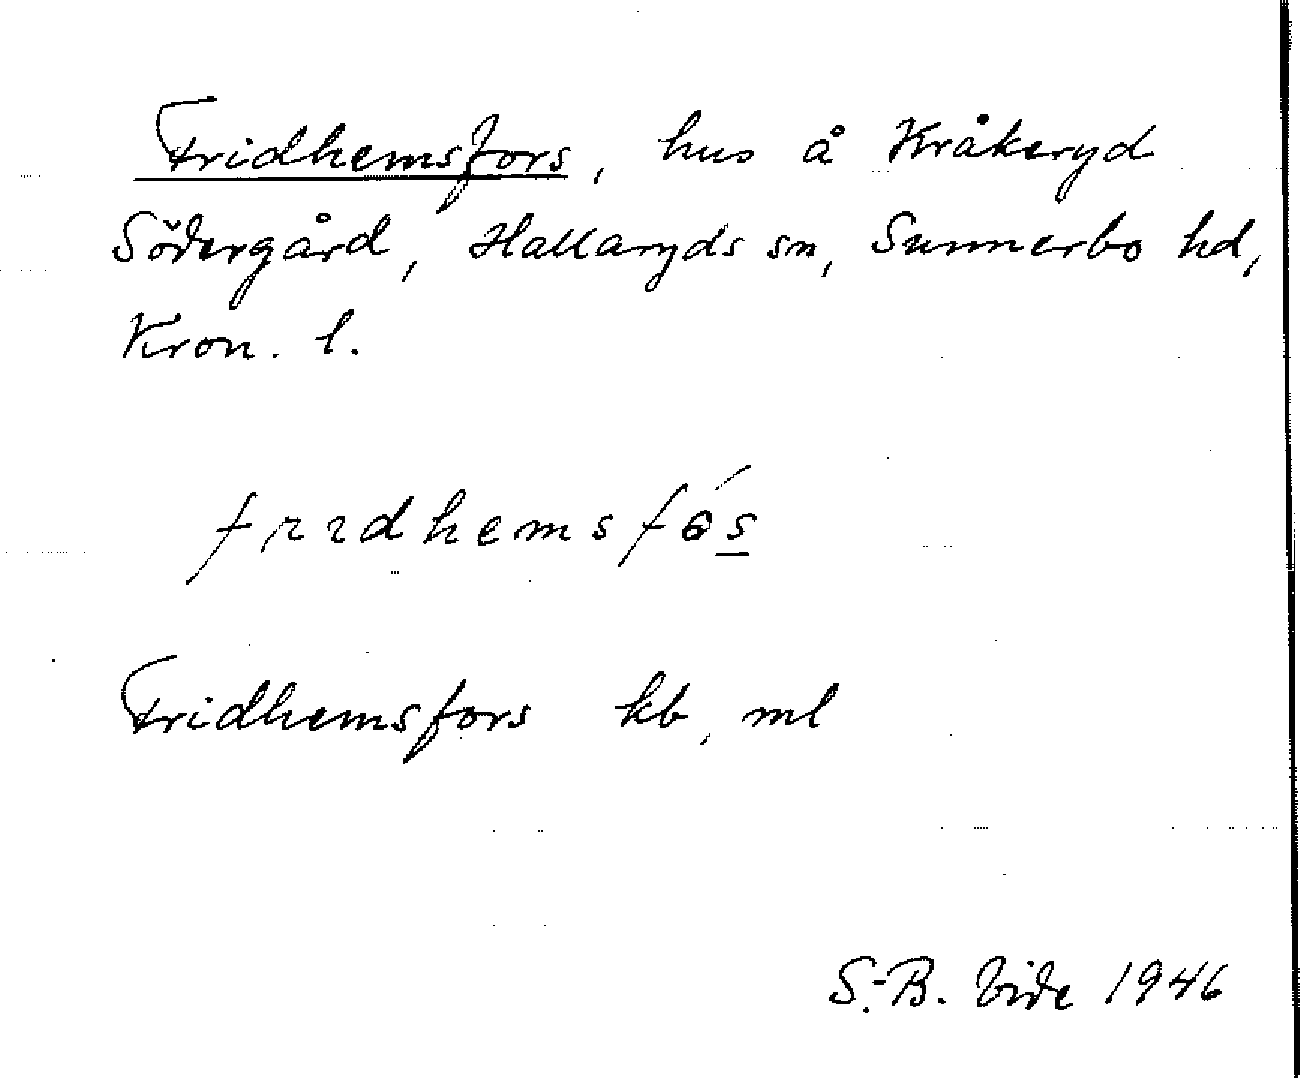 Fridhemsfors, hus å Kråkeryd
Södergård, Hallaryds sn, Sunnerbo hd,
Kron. l.
frıdhemsfɵ́s
Fridhemsfors kb, ml
S.-B. Vide 1946